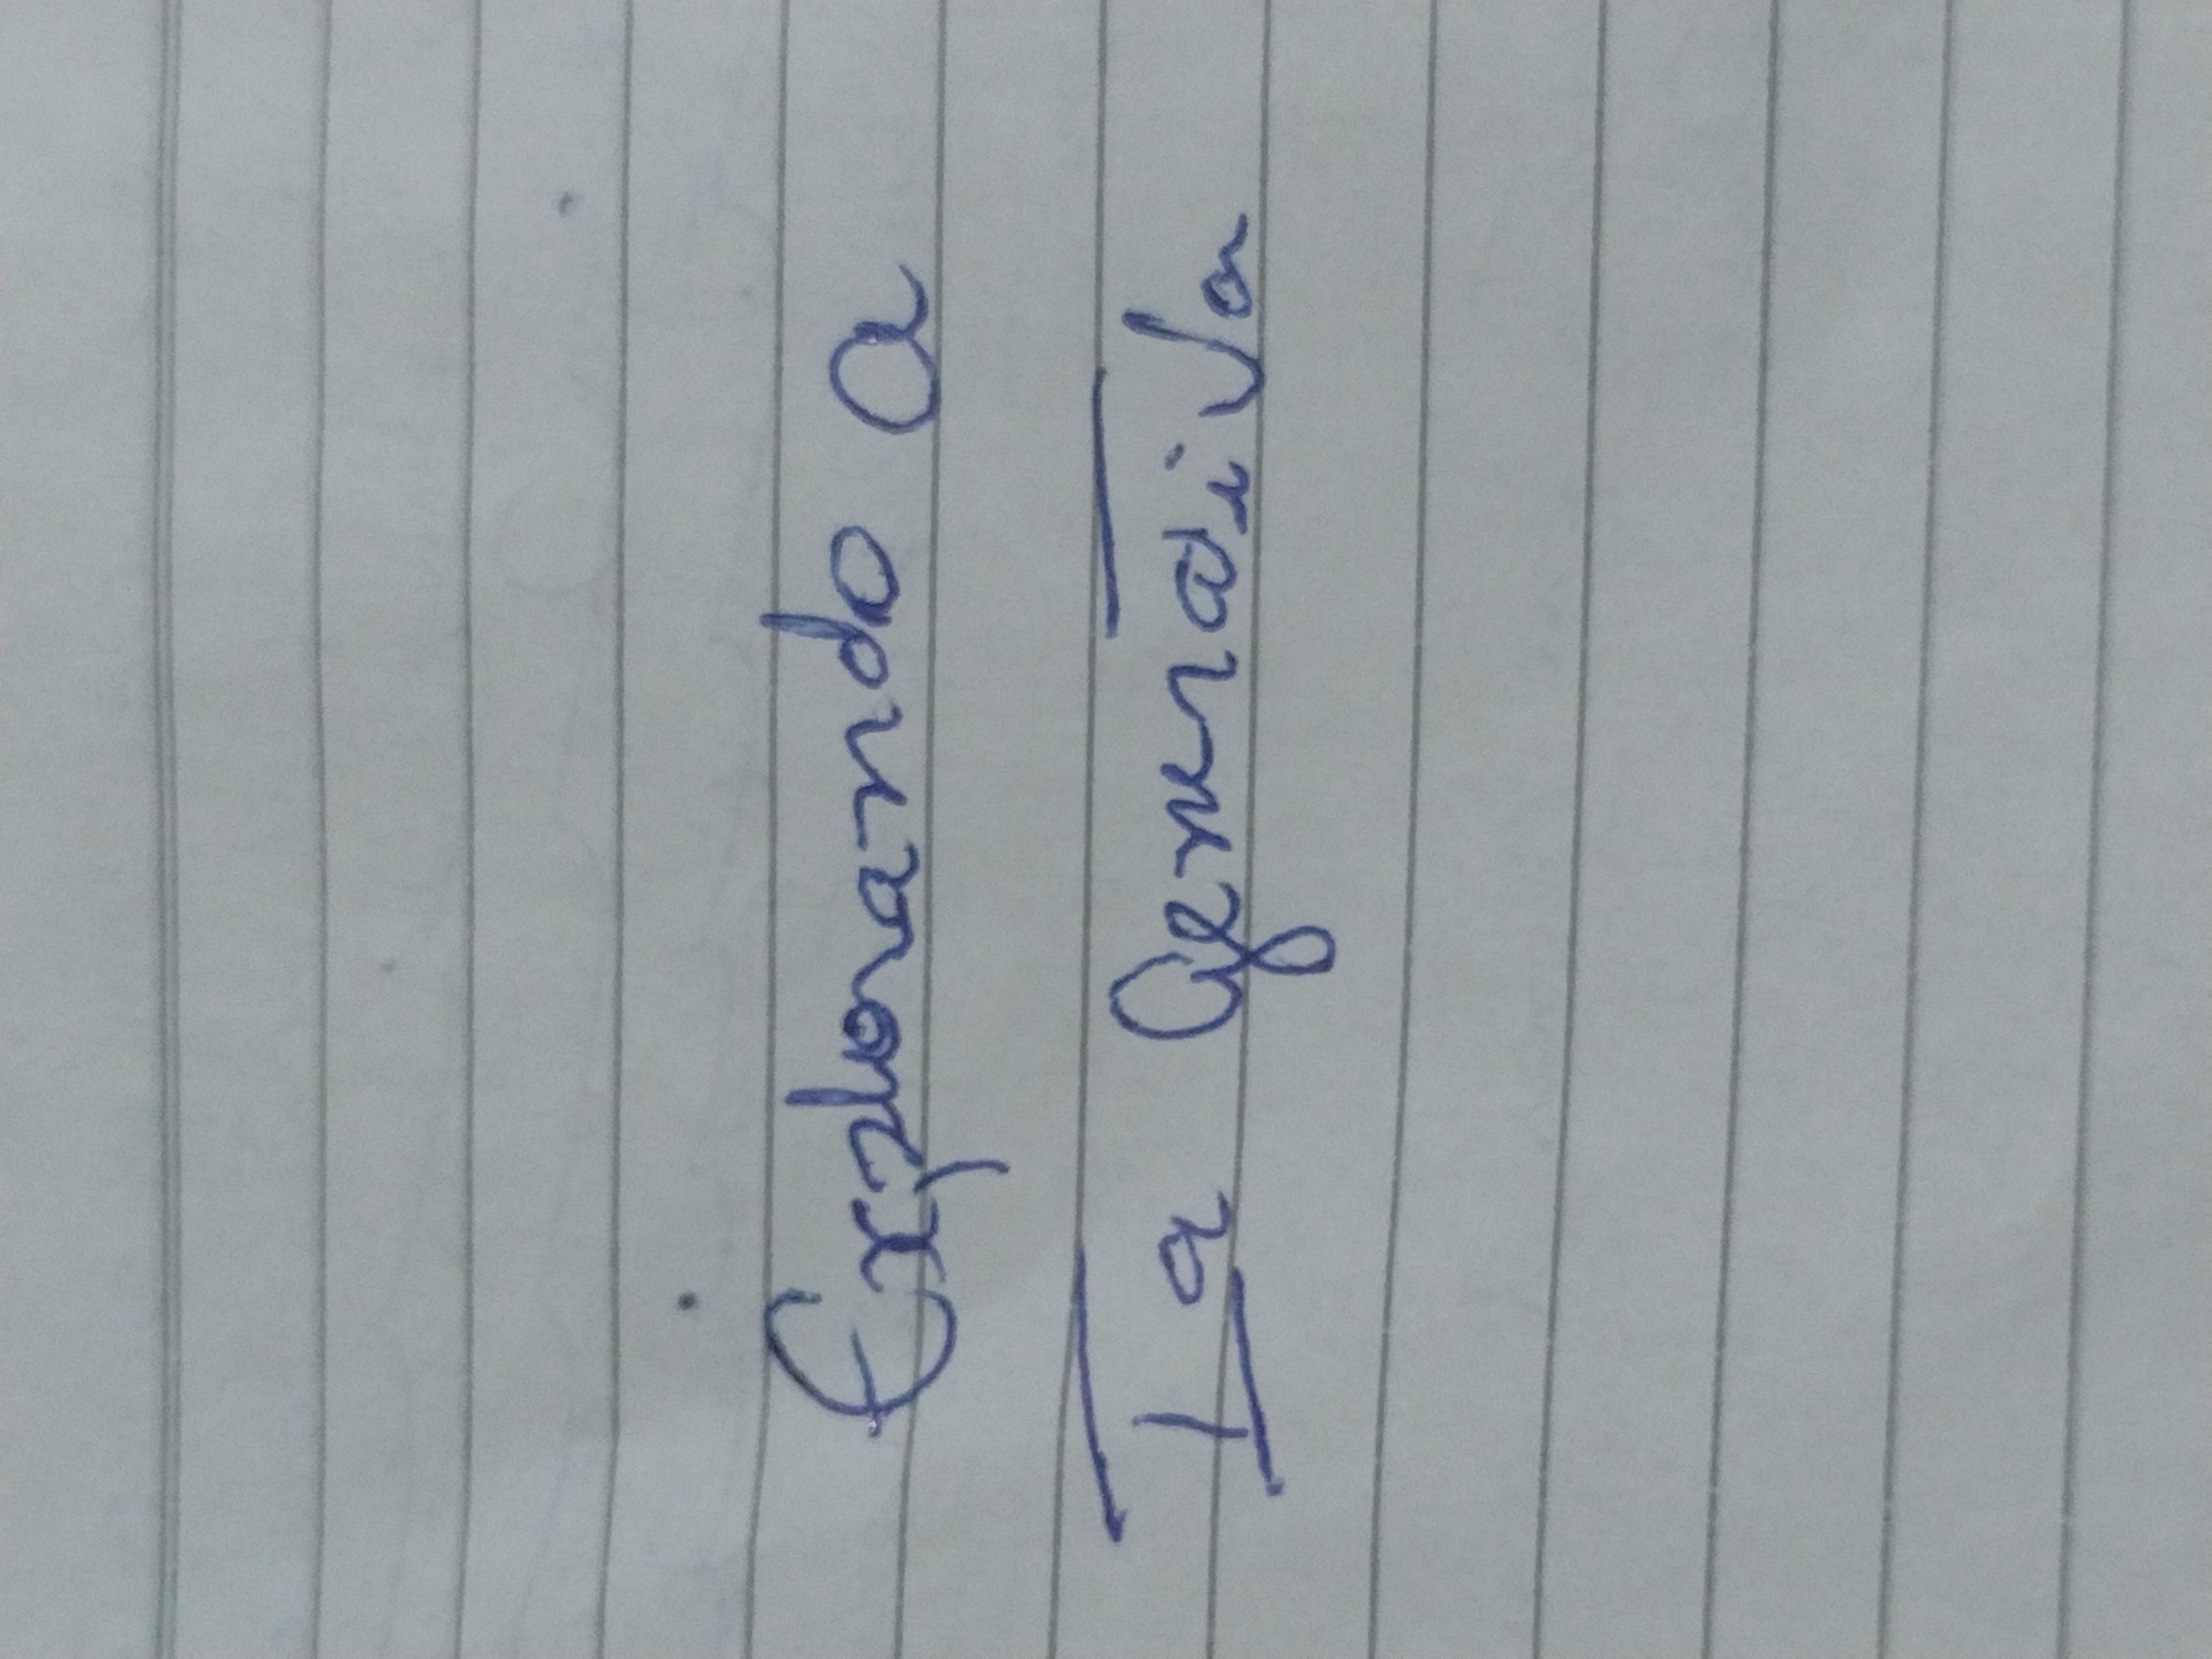 Explorando a
Ia Generativa